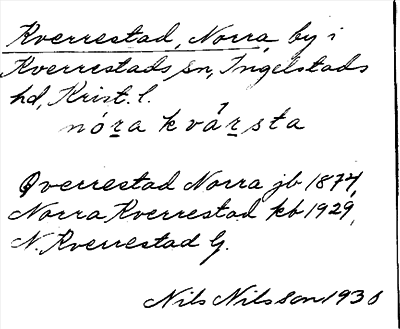 Kverrestad, Norra, by i
Kverrestads sn, Ingelstads
hd, Krist. l.
nóra kvársta
Qverrestad Norra jb 1877,
Norra Kverrestad kb 1929,
N. Kverrestad G.
Nils Nilsson 1930